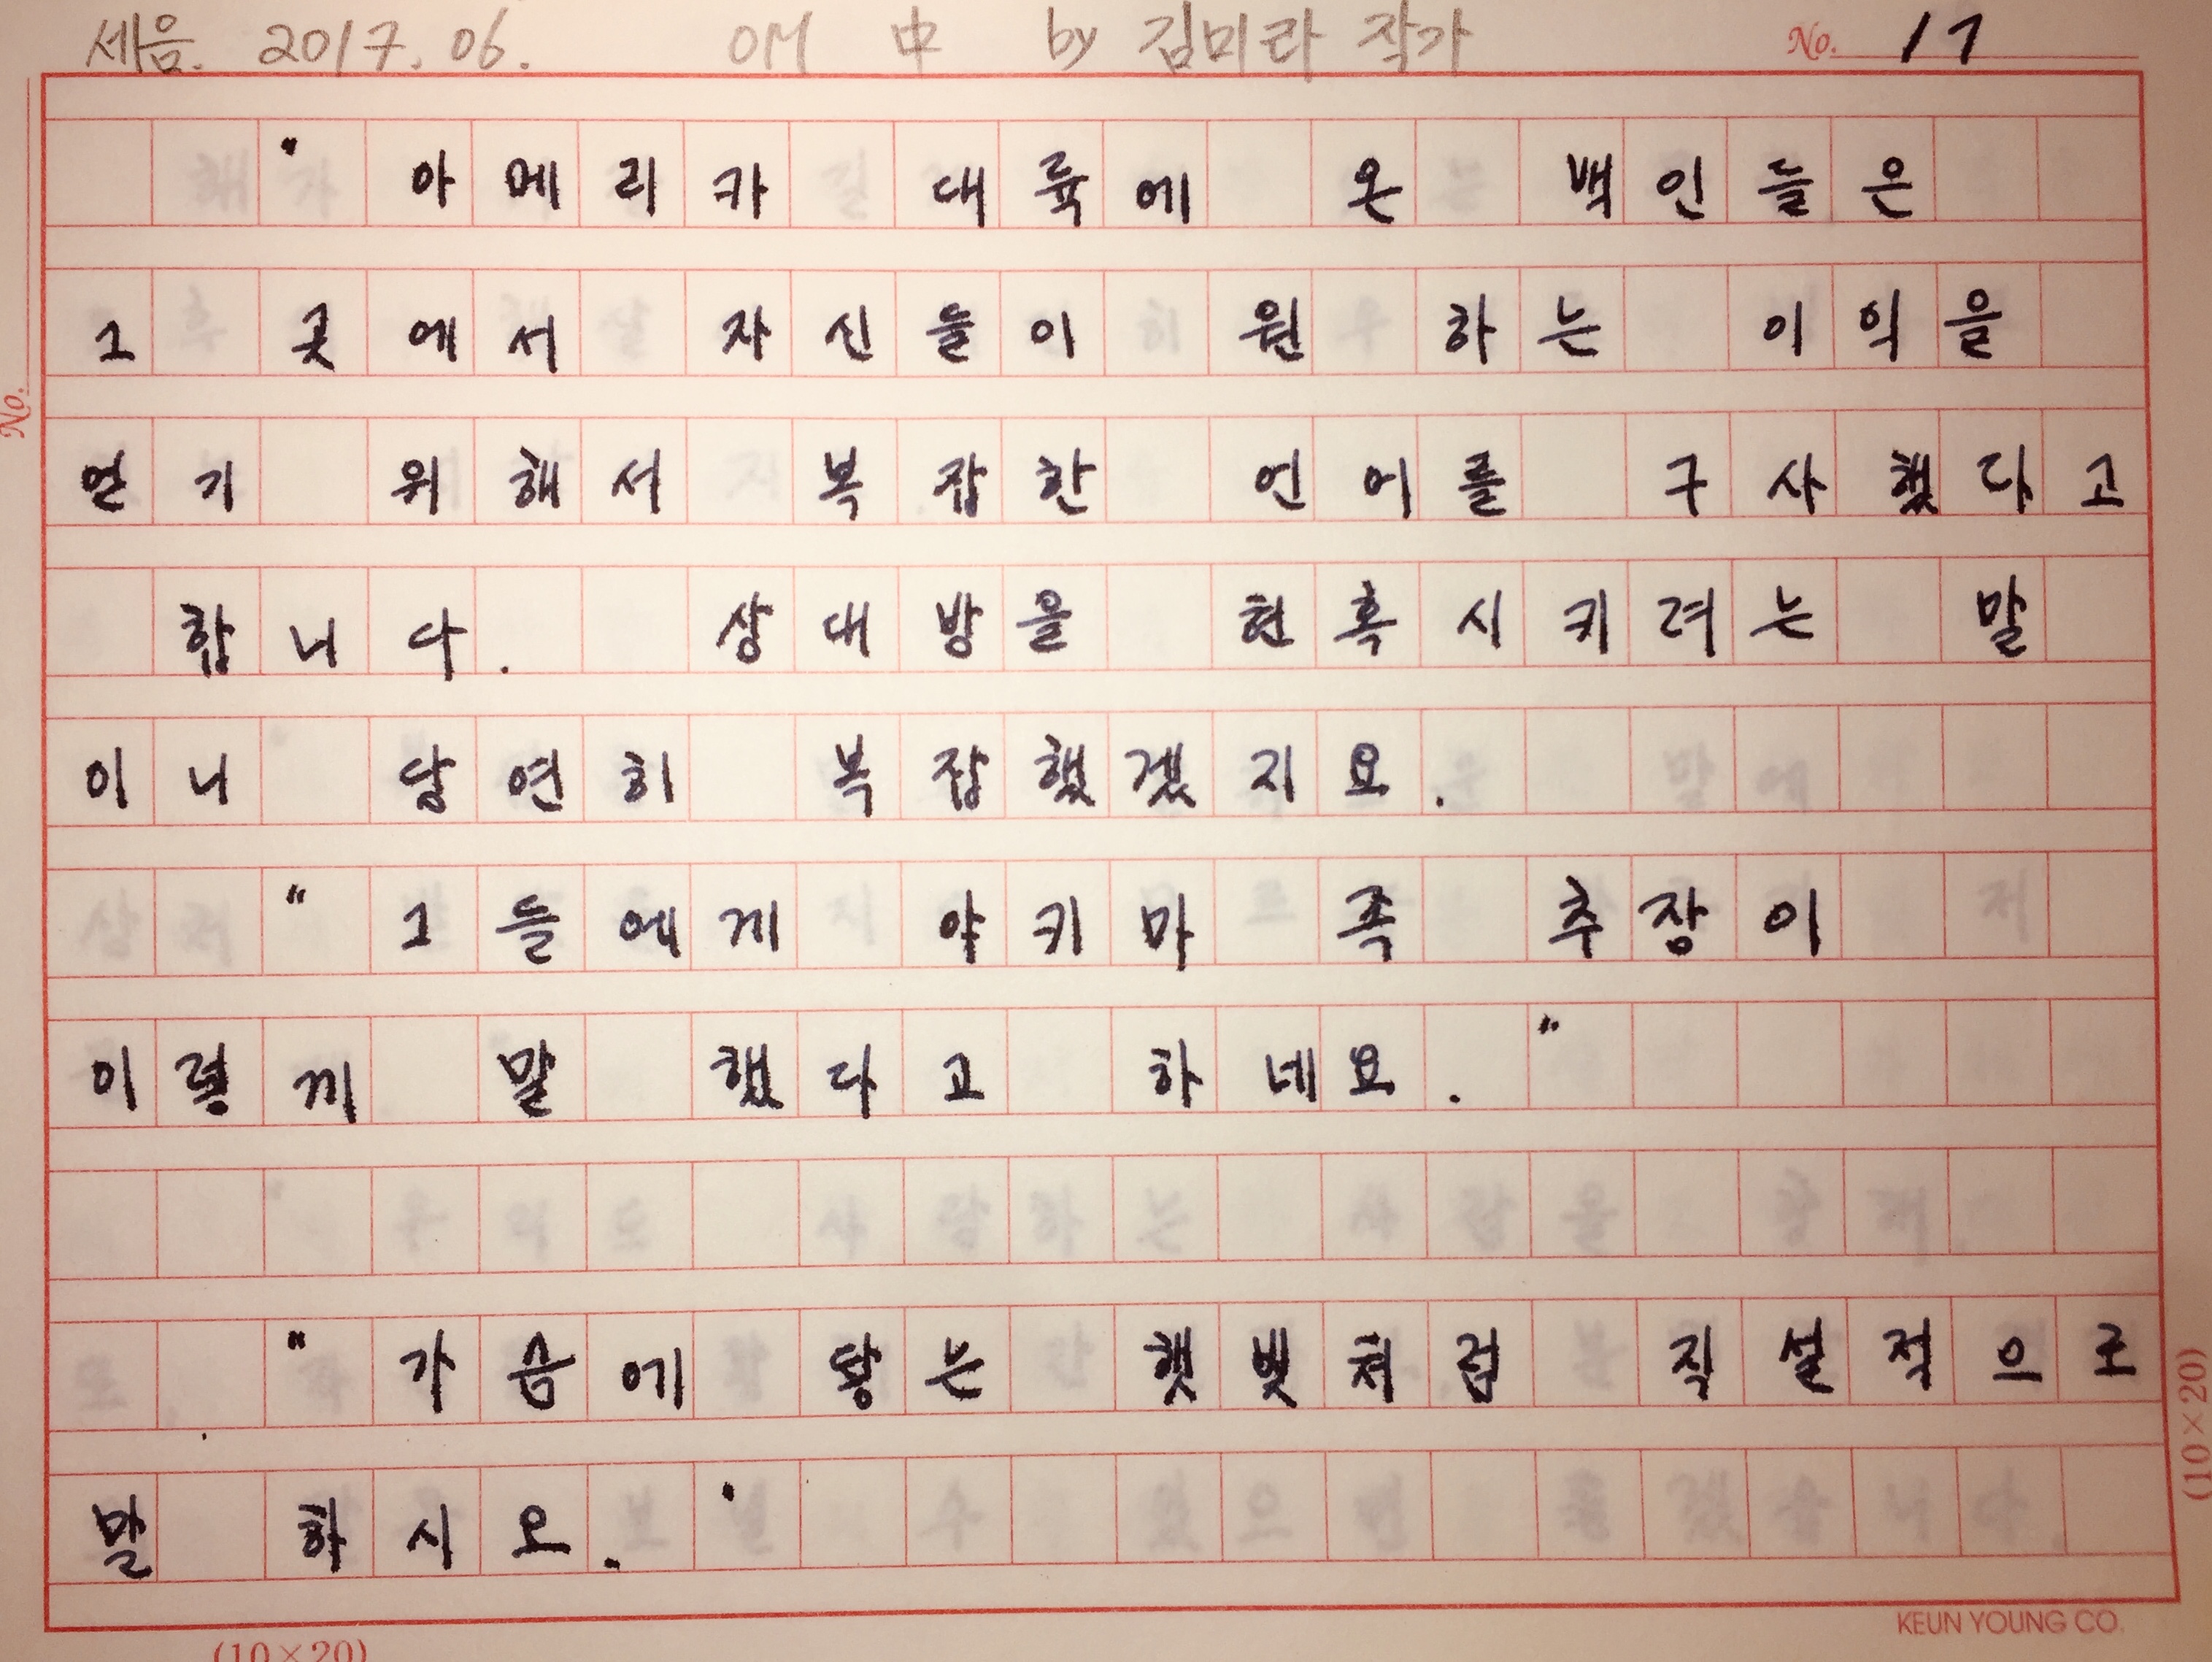 세음. 2017. 06. OM 中 by 김미라 작가
No. 17
" 아메리카 대륙에 온 백인들은
그 곳에서 자신들이 원하는 이익을
얻기 위해서 복잡한 언어를 구사했다고
합니다. 상대방을 현혹시키려는 말
이니 당연히 복잡했겠지요.
" 그들에게 야키마 족 추장이
이렇게 말 했다고 하네요. "
" 가슴에 닿는 햇빛처럼 직설적으로
말 하시오. "
No.
(10×20)
KEUN YOUNG CO.
(10×20)